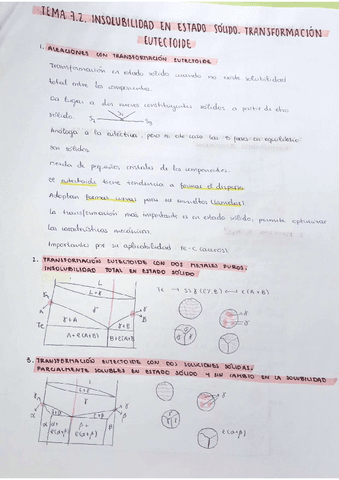 TEMA 7.2. INSOLUBILIDAD EN ESTADO SÓLIDO. TRANSFORMACIÓN
EUTECTOIDE
1. ALEACIONES CON TRANSFORMACIÓN EUTECTOIDE
Transformación en estado sólido cuando no existe solubilidad
total entre los componentes.
Da lugar a dos nuevos constituyentes sólidos a partir de otro
sólido.
Análoga a la eutéctica, pero en este caso las 3 fases en equilibrio
son sólidos.
Mezcla de pequeños cristales de los componentes.
El eutectoide tiene tendencia a formas el disperso
Adoptan formas curvas para su (lamelas)
la transformación más importante es en estado sólido, permite optimizar
las características mecánicas.
Importantes por su aplicabilidad Fe-C (aceros).
2. TRANSFORMACIÓN EUTECTOIDE CON DOS METALES PUROS.
INSOLUBILIDAD TOTAL EN ESTADO SÓLIDO
L
L+γ
γ
A
B
Te
γ+A
γ+B
A+e(A+B)
B+e(A+B)
3. TRANSFORMACIÓN EUTECTOIDE CON DOS SOLUCIONES SÓLIDAS,
PARCIALMENTE SOLUBLES EN ESTADO SÓLIDO Y SIN CAMBIO EN LA SOLUBILIDAD
L
L+γ
γ
α
β
e(α+β)